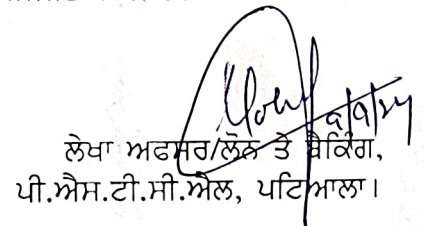 ਲੇਖਾ ਅਫਸਰ/ਲੋਨ ਤੇ ਬੈਕਿੰਗ,
ਪੀ.ਐਸ.ਟੀ.ਸੀ.ਐਲ, ਪਟਿਆਲਾ।